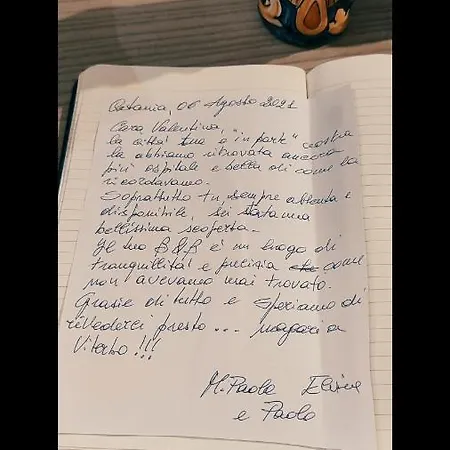 Catania, 06 Agosto 2021
Cara Valentina,
la città tua e "in parte" nostra
la abbiamo ritrovata ancora
più ospitale e bella di come la
ricordavamo.
Soprattutto tu, sempre attenta e
disponibile, sei stata una
bellissima scoperta.
Il tuo B&B è un luogo di
tranquillità e pulizia che come
non avevamo mai trovato.
Grazie di tutto e speriamo di
rivederci presto... magari a
Viterbo!!!
M. Paola Elisa
e Paolo